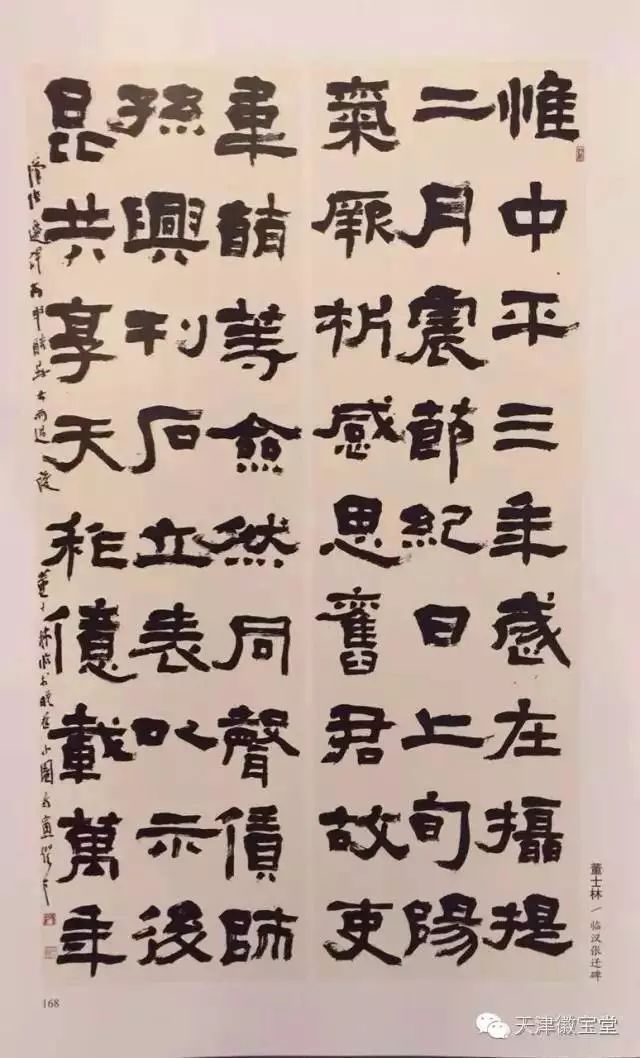 惟中平三年歲在攝提
二月震節紀日上旬陽
氣厥析感思舊君故吏
韋萌等僉然同聲賃師
孫興刊石立表以示後
昆共享天祚億載萬年
漢張遷碑丙申
董士林臨於 小園
董士林／临汉张迁碑
168
天津徽宝堂